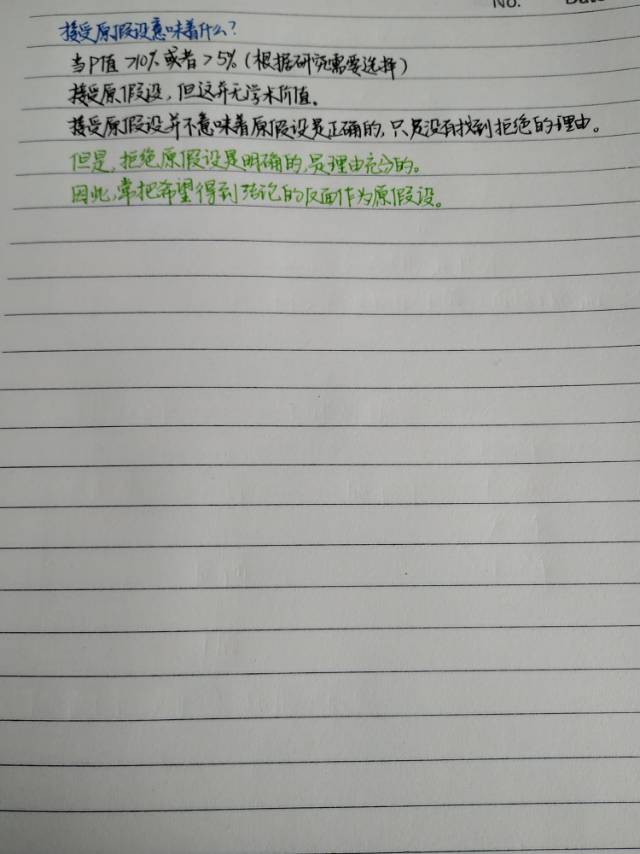 No.
接受原假设意味着什么？
当P值>10%或者>5%（根据研究需要选择）
接受原假设，但这并无学术价值。
接受原假设并不意味着原假设是正确的，只是没有找到拒绝的理由。
但是，拒绝原假设是明确的，是理由充分的。
因此，常把希望得到结论的反面作为原假设。